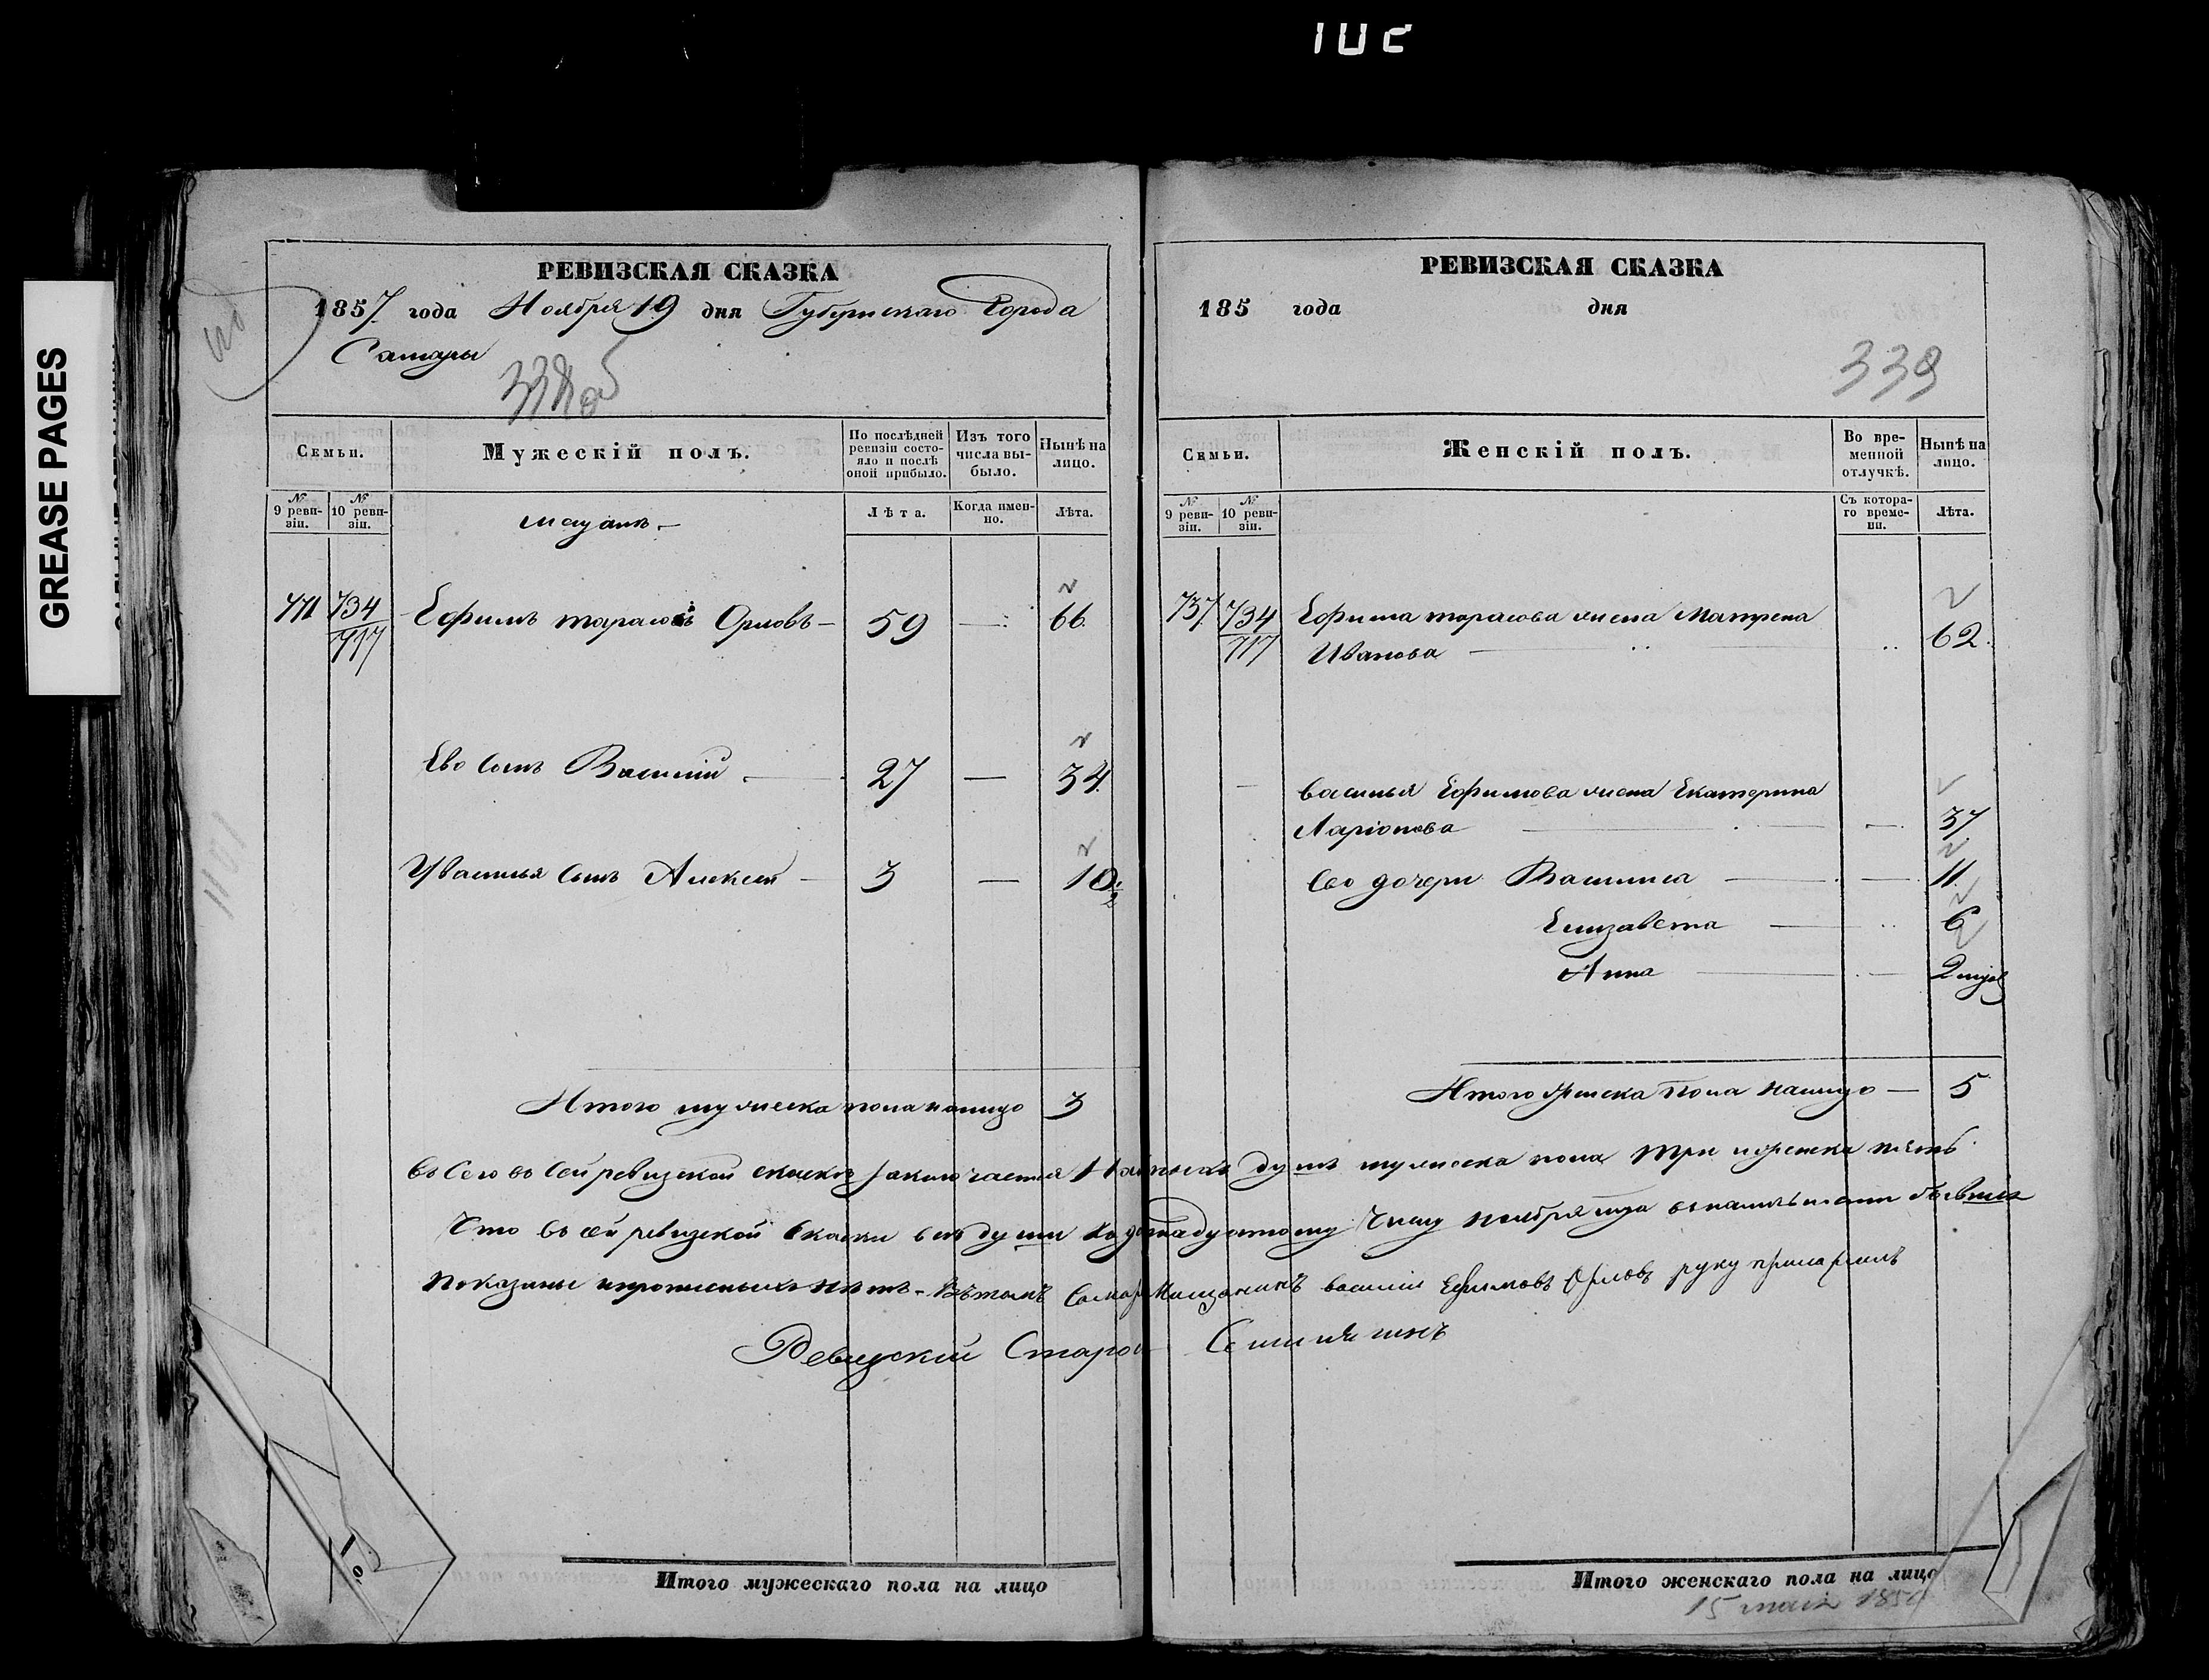 GREASE PAGES
РЕВИЗСКАЯ СКАЗКА
1857 года Ноября 19 дня Губернскаго Города
Самары
Семьи.
Мужескій полъ.
По послѣдней ревизіи состояло и послѣ оной прибыло.
Изъ того числа выбыло.
Нынѣ на лицо.
№ 9 ревизіи.
№ 10 ревизіи.
Лѣта.
Когда именно.
Лѣта.
734 Ефимъ тарасовъ Орловъ 59 — 66
717
Ево сынъ Василій 27 — 34
У василья сынъ Алексей 3 — 10
Итого мужеска пола налицо 3
РЕВИЗСКАЯ СКАЗКА
185 года дня
339
Семьи.
Женскій полъ.
Во временной отлучкѣ.
Нынѣ на лицо.
№ 9 ревизіи.
№ 10 ревизіи.
Съ котораго времени.
Лѣта.
737 734 Ефима тарасова жена Матрена
717 Иванова 62
василья Ефимова жена Екатерина
Ларіонова 37
Ево дочери Василиса 11
Елизавета 6
Анна 2
Итого женска пола налицо — 5
всего въ сей ревизской сказкѣ заключается душъ мужеска пола три и женска пять
Что въ сей ревизской сказки всѣ души числу ноября
показаны и прописныхъ нѣтъ василій Ефимовъ Орловъ руку приложилъ
Ревизский Старо
Итого мужескаго пола на лицо
Итого женскаго пола на лицо